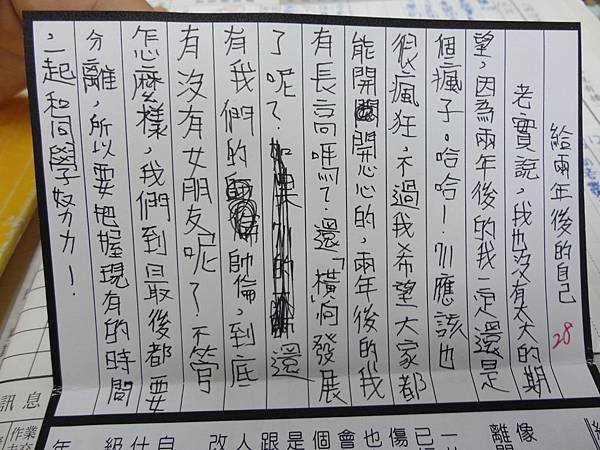 給兩年後的自己
28
老實說，我也沒有太大的期
望，因為兩年後的我一定還是
個瘋子。哈哈！川應該也
很瘋狂，不過我希望大家都
能開開心心的，兩年後的我
有長高嗎？還「橫向發展
了呢？還
有我們的帥倫，到底
有沒有女朋友呢？不管
怎麼樣，我們到最後都要
分離，所以要把握現有的時間
，一起和同學努力！
訊息
作業
像
離開
一
已
傷
也
會
個
是
跟
人
改
自
仕
級
年